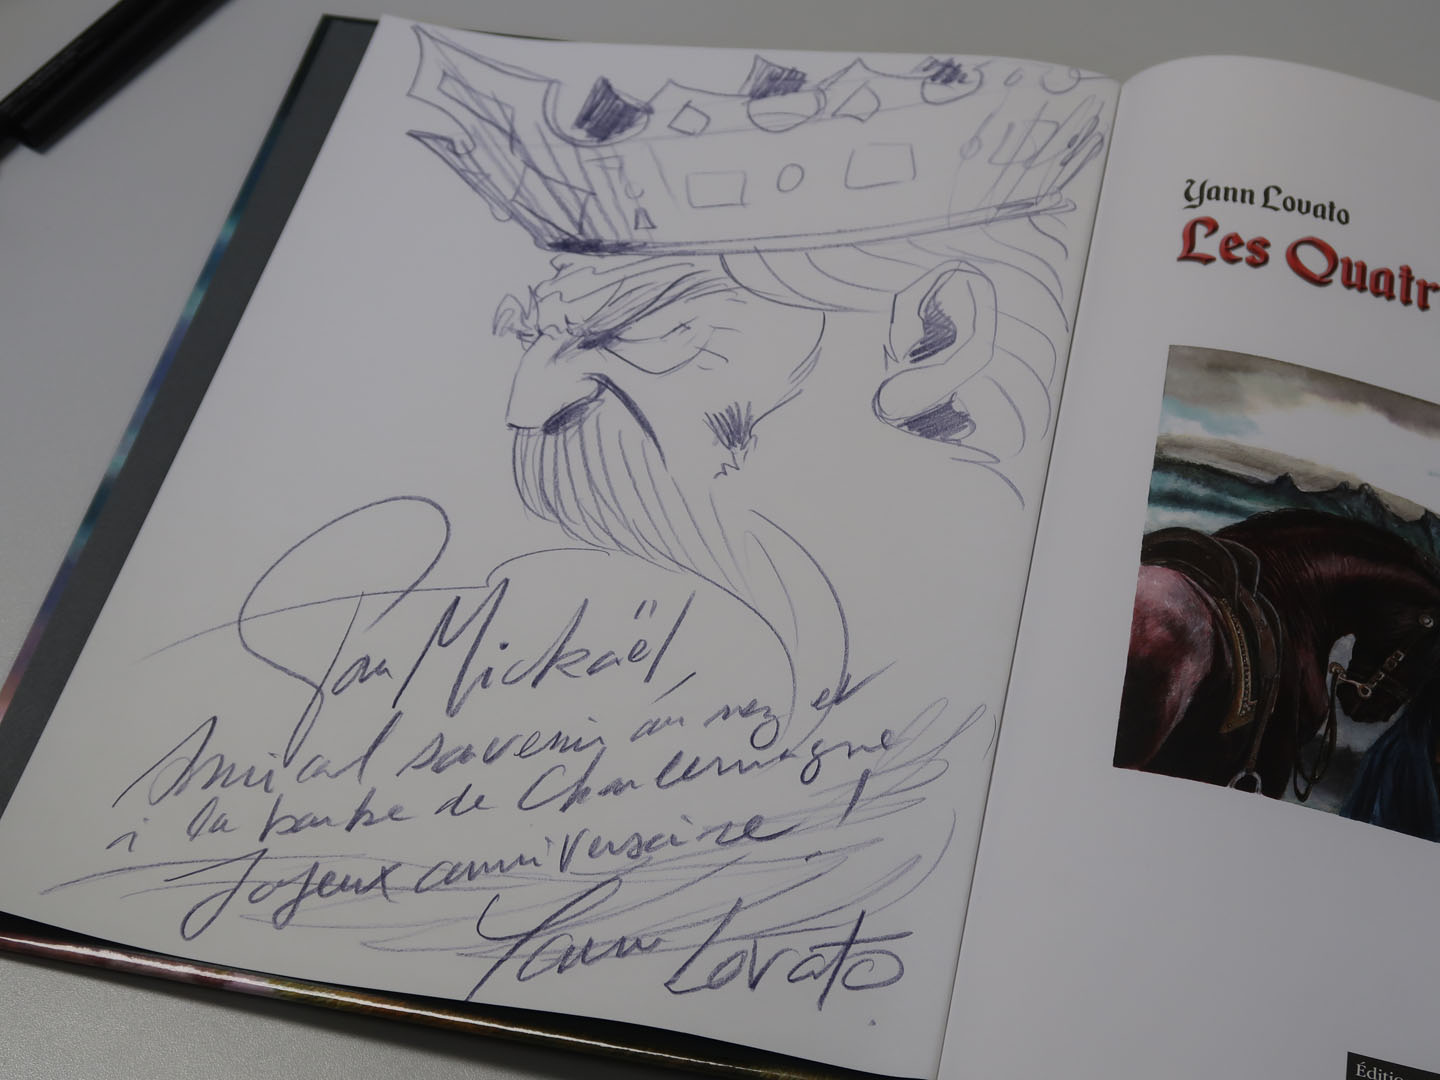 Pour Mickaël,
Amical souvenir au nez et
à la barbe de Charlemagne
Joyeux anniversaire !
Yann Lovato
Yann Lovato
Les Quatr
Éditio